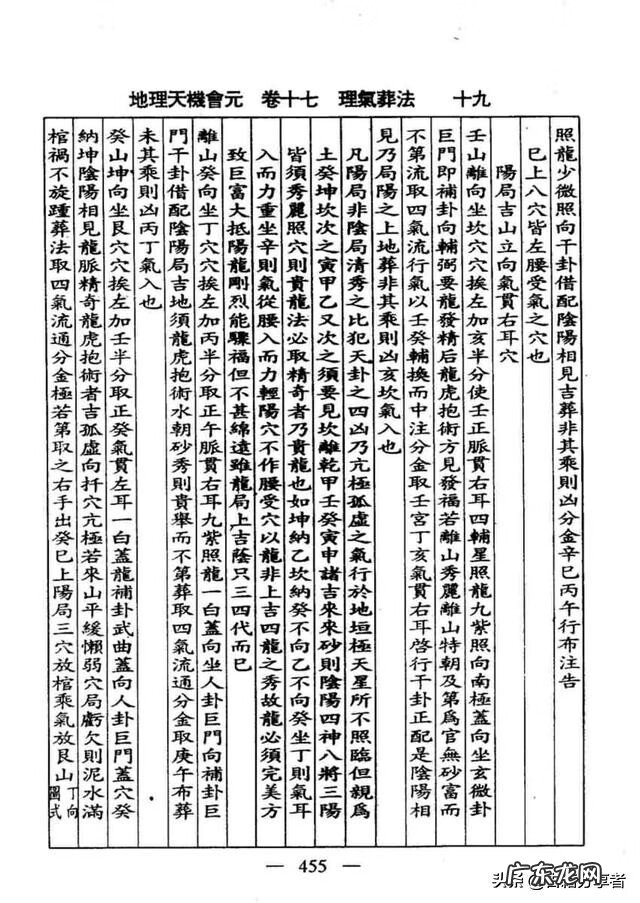 地理天機會元　卷十七　理氣葬法　十九
照龍少微照向干卦借配陰陽相見吉葬非其乘則凶分金辛巳丙午行布注告
巳上八穴皆左腰受氣之穴也
陽局吉山立向氣貫右耳穴
壬山離向坐坎穴穴挨左加亥半分使壬正脈貫右耳四輔星照龍九紫照向南極蓋向坐玄微卦
巨門即補卦向輔弼要龍發精后龍虎抱術方見發福若離山秀麗離山特朝及第爲官無砂富而
不第流取四氣流行氣以壬癸輔換而中注分金取壬宮丁亥氣貫右耳啓行干卦正配是陰陽相
見乃局陽之上地葬非其乘則凶亥坎氣入也
凡陽局非陰局清秀之比犯天卦之四凶乃亢極孤虛之氣行於地垣極天星所不照臨但親爲
土癸坤坎次之寅甲乙又次之須要見坎離乾甲壬癸寅申諸吉來來砂則陰陽四神八將三陽
皆須秀麗照穴則貴龍法必取精奇者乃貴龍也如坤納乙坎納癸不向乙不向癸坐丁則氣耳
入而力重坐辛則氣從腰入而力輕陽穴不作腰受穴以龍非上吉四龍之秀故龍必須完美方
致巨富大抵陽龍剛烈能驟福但不甚綿遠雖龍局上吉蔭只三四代而巳
離山癸向坐丁穴穴挨左加丙半分取正午脈貫右耳九紫照龍一白蓋向坐人卦巨門向補卦巨
門干卦借配陰陽局吉地須龍虎抱術水朝砂秀則貴舉而不第葬取四氣流通分金取庚午布葬
未其乘則凶丙丁氣入也
癸山坤向坐艮穴穴挨左加壬半分取正癸氣貫左耳一白蓋龍補卦武曲蓋向人卦巨門蓋穴癸
納坤陰陽相見龍脈精奇龍虎抱術者吉孤虛向扦穴亢極若來山平緩懶弱穴局虧欠則泥水滿
棺禍不旋踵葬法取四氣流通分金極若第取之右手出癸巳上陽局三穴放棺乘氣放艮山丁向圖式
— 455 —
广东龙网
头条
分享者